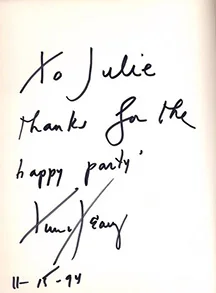 To Julie
thanks for the
happy party'
11-15-94